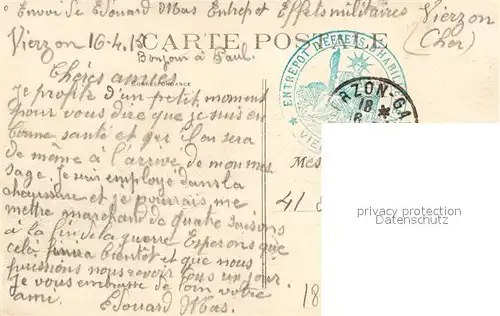 Envoi de Edouard Mas Entrepot Effets militaires Vierzon
(Cher)
Vierzon 16-4.18
CARTE POSTALE
Bonjour à Paul.
Chères amies
CORRESPONDANCE
Je profite d'un petit moment
pour vous dire que je suis en
bonne santé et qu'il en sera
de même à l'arrivé de mon mes
sage. Je suis employé dans la
chaussure et je pourrais me
mettre marchand de quatre saisons
à la fin de la guerre. Esperons que
celà finira bientôt et que nous
puissions nous revoir tous un jour.
Je vous embrasse de loin votre
ami. Edouard Mas.
ENTREPOT D'EFFETS D'HABIL
VIE
RZON-GA
18
41
18
privacy protection
Datenschutz